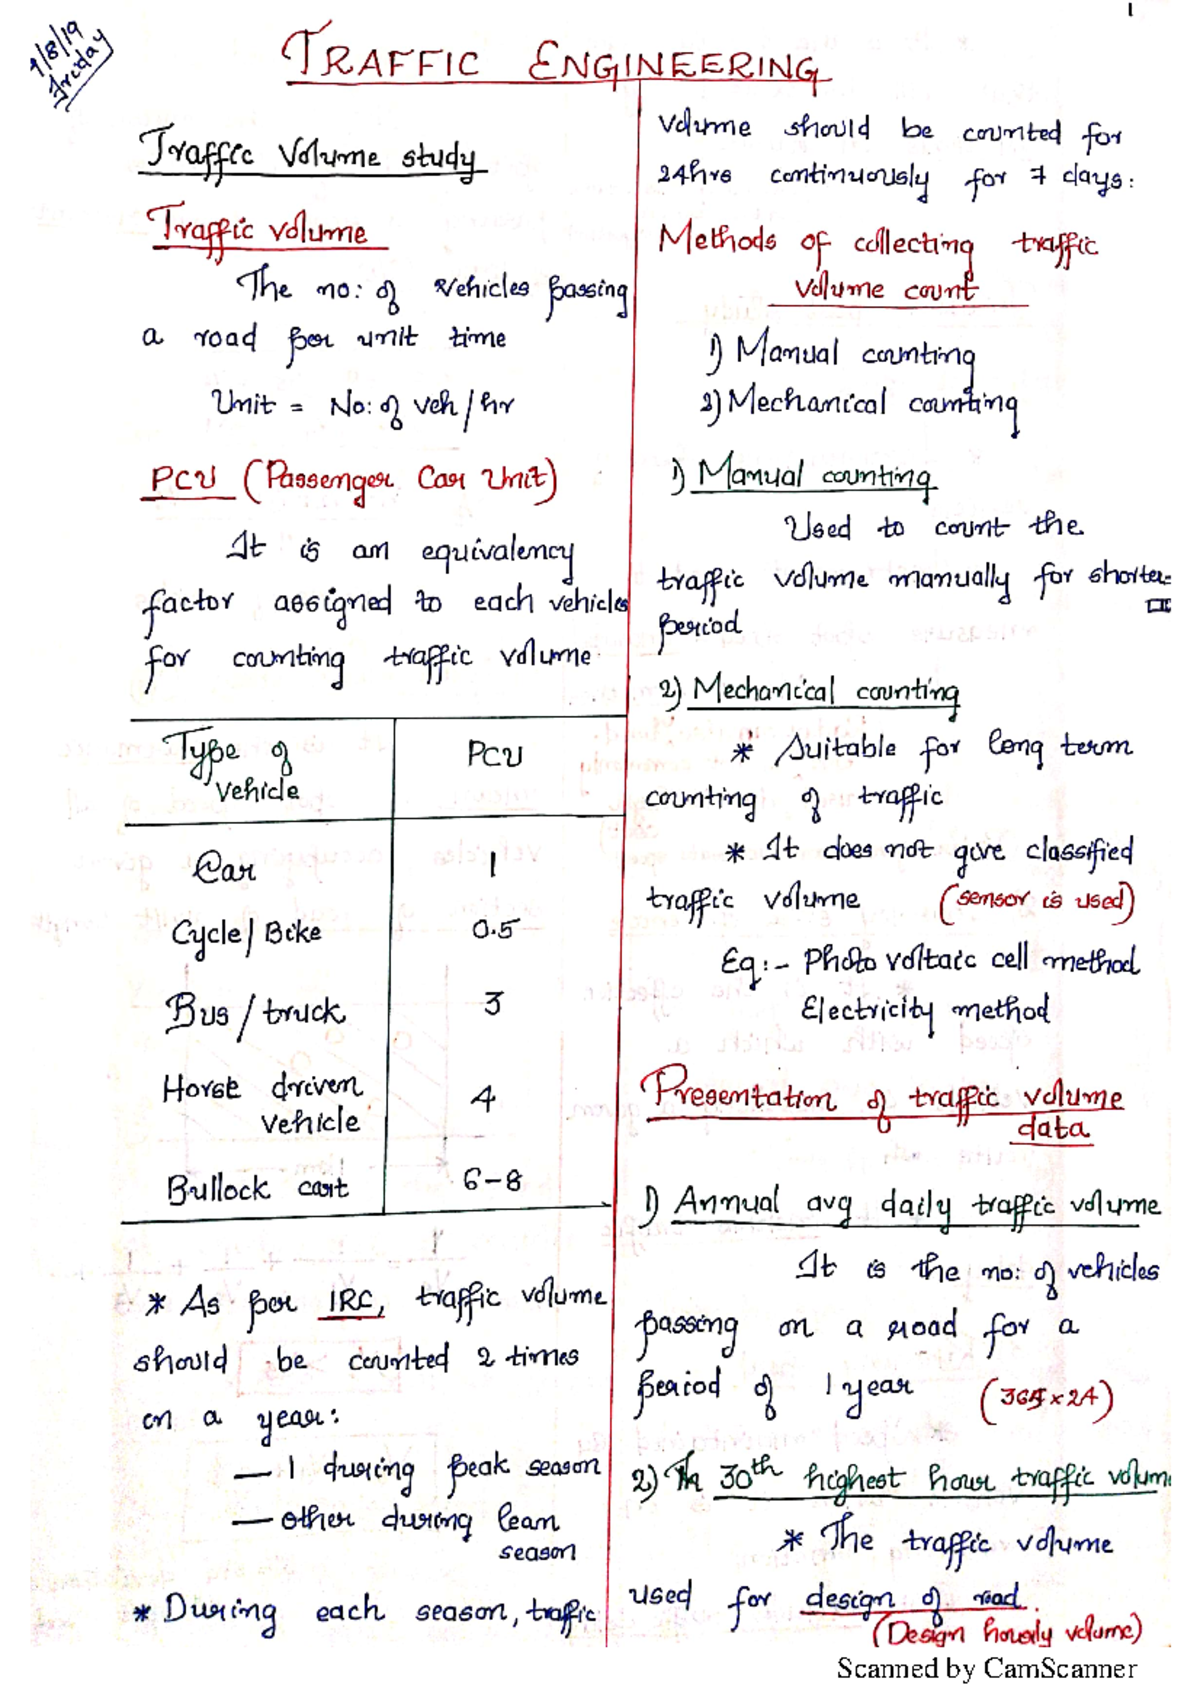 1
9/8/19
Friday
TRAFFIC ENGINEERING
Traffic Volume study
Traffic volume
The no: of vehicles passing
a road per unit time
Unit = No: of veh/hr
PCU (Passenger Car Unit)
It is an equivalency
factor assigned to each vehicles
for counting traffic volume.
Type of vehicle PCU
Car 1
Cycle/Bike 0.5
Bus/truck 3
Horse driven vehicle 4
Bullock cart 6-8
* As per IRC, traffic volume
should be counted 2 times
on a year:
— 1 during peak season
— other during lean
season
* During each season, traffic
volume should be counted for
24hrs continuously for 7 days:
Methods of collecting traffic
volume count
1) Manual counting
2) Mechanical counting
1) Manual counting
Used to count the
traffic volume manually for shorter
period
2) Mechanical counting
* Suitable for long term
counting of traffic
* It does not give classified
traffic volume (sensor is used)
Eg:- Photo voltaic cell method
Electricity method
Presentation of traffic volume
data
1) Annual avg daily traffic volume
It is the no: of vehicles
passing on a road for a
period of 1 year (365×24)
2) The 30th highest hour traffic volum
* The traffic volume
used for design of road.
(Design hourly volume)
Scanned by CamScanner